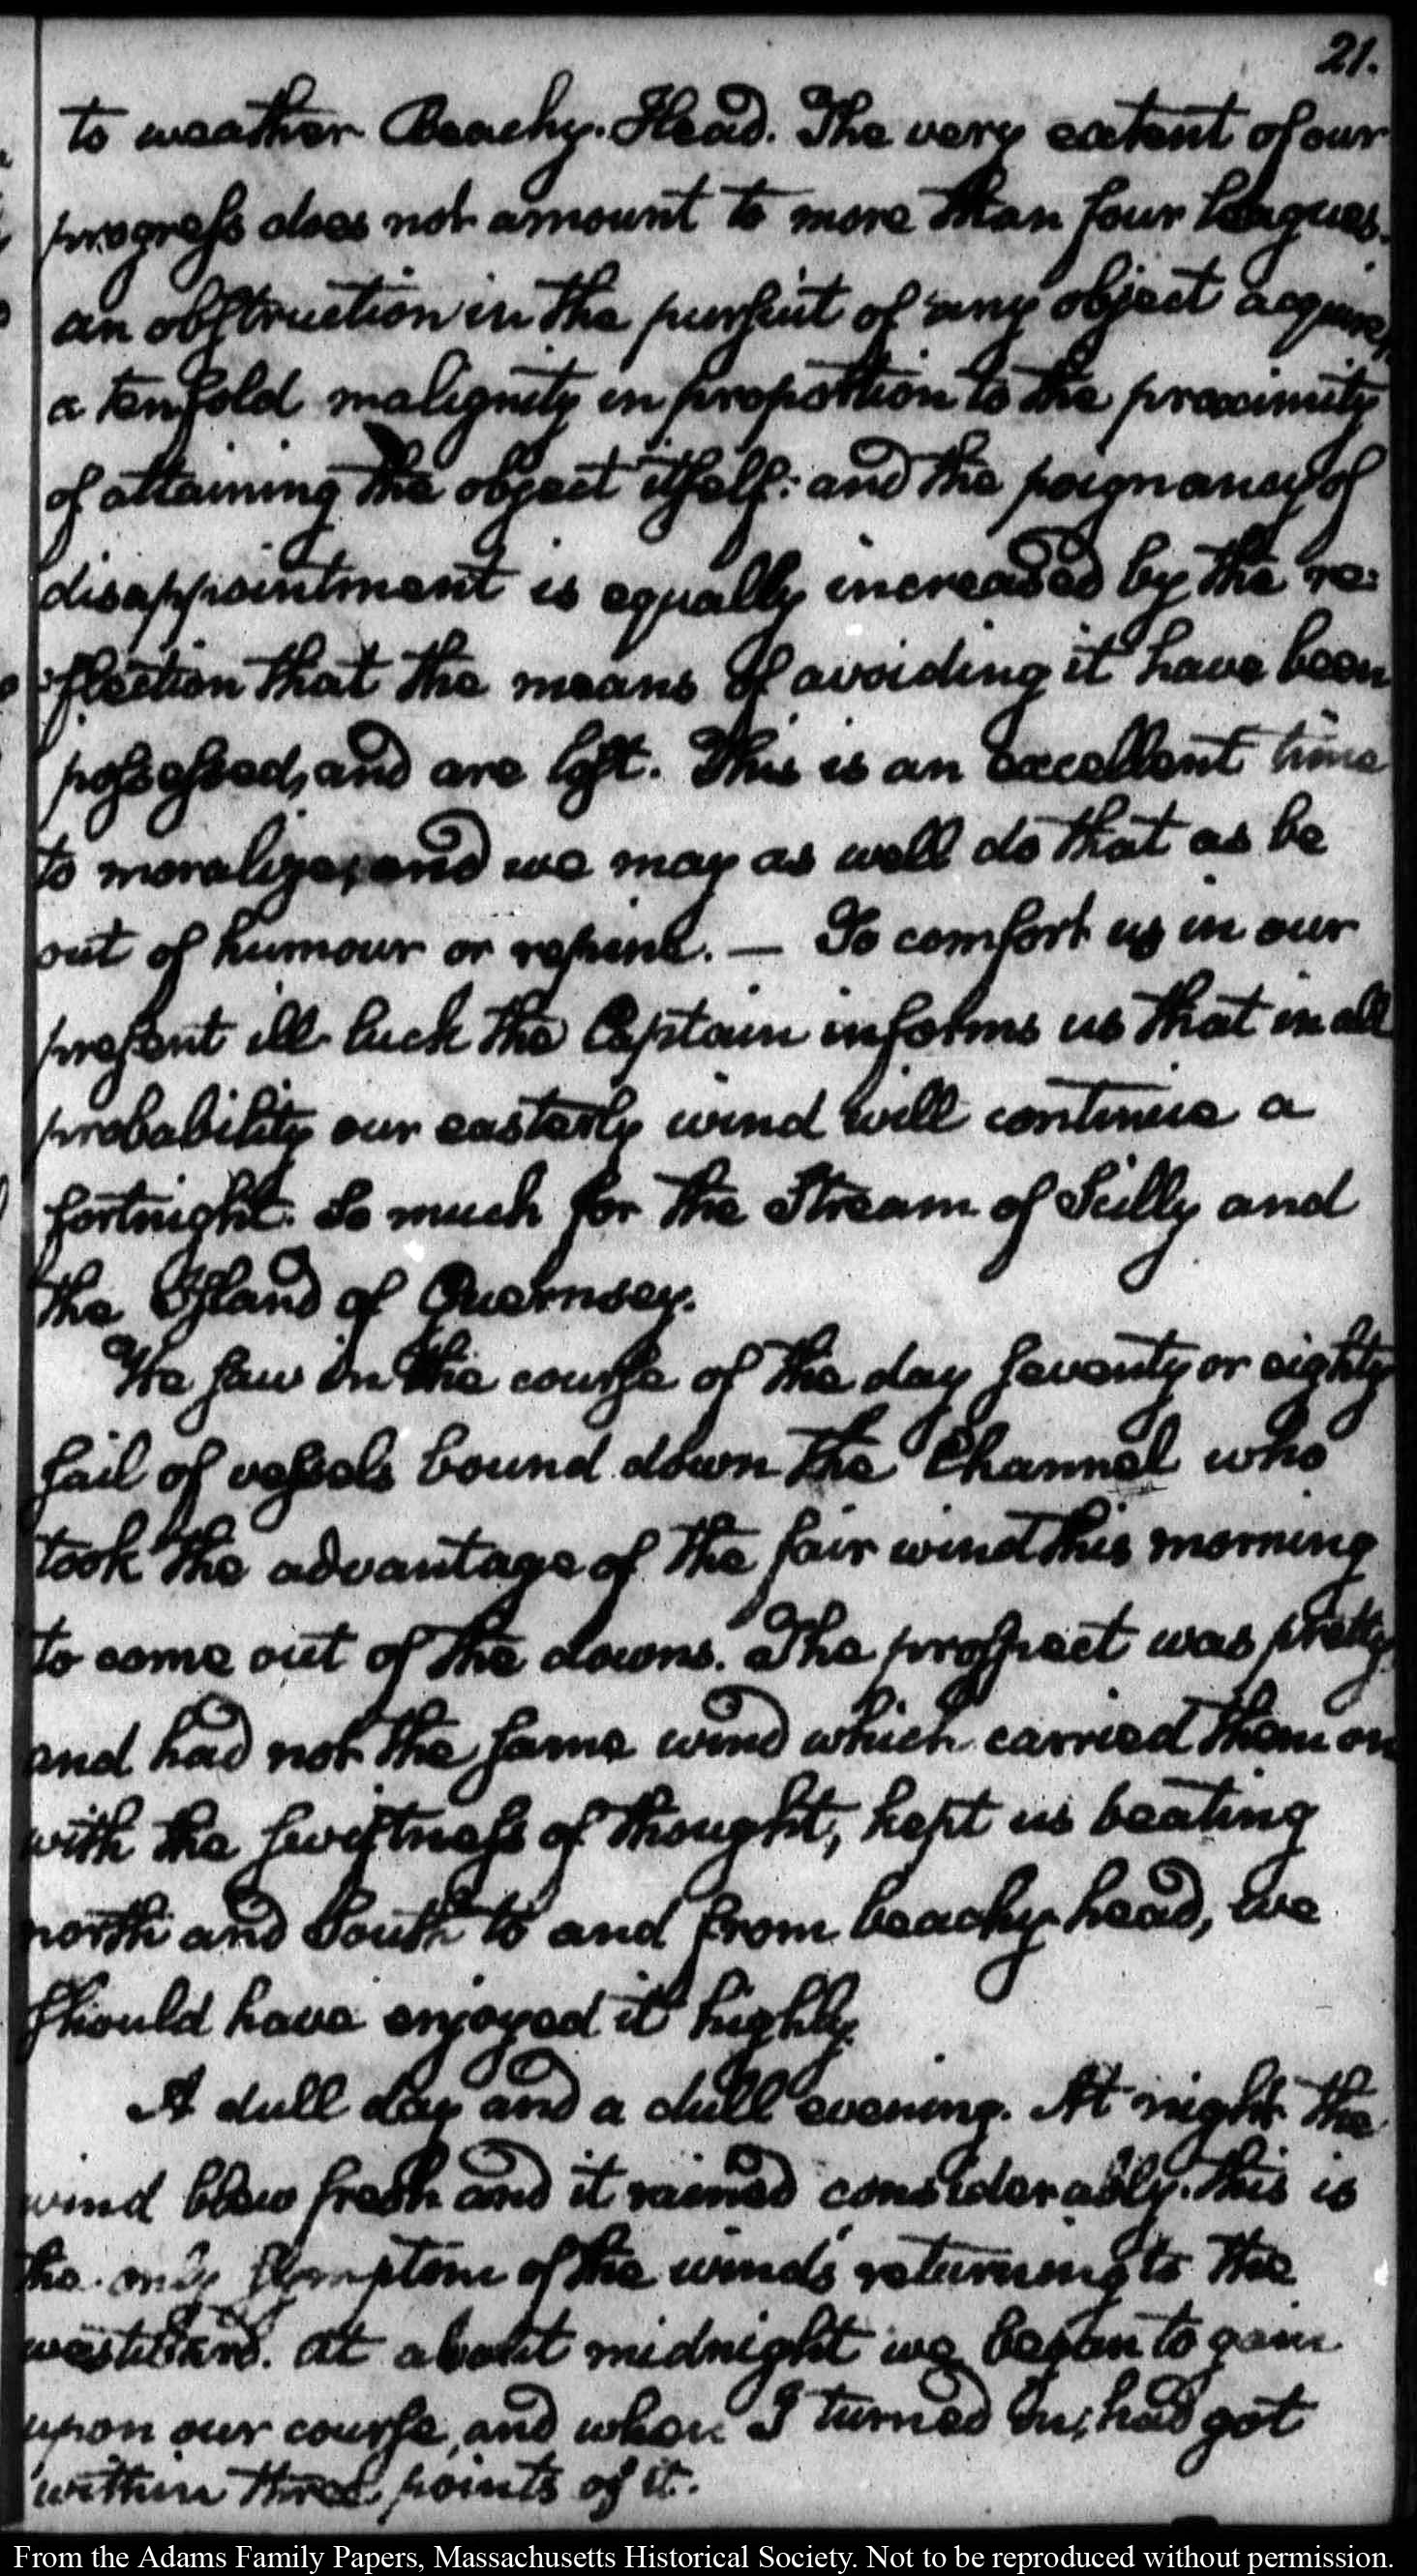 21.
to weather Beachy-Head. The very extent of our
progress does not amount to more than four leagues.
an obstruction in the pursuit of any object acquires
a tenfold malignity in proportion to the proximity
of attaining the object itself: and the poignancy of
disappointment is equally increased by the re:
:flection that the means of avoiding it have been
possessed, and are lost. This is an excellent time
to moralize, and we may as well do that as be
out of humour or repine. — To comfort us in our
present ill luck the Captain informs us that in all
probability our easterly wind will continue a
fortnight. So much for the Stream of Scilly and
the Island of Guernsey.
We saw in the course of the day seventy or eighty
sail of vessels bound down the Channel who
took the advantage of the fair wind this morning
to come out of the downs. The prospect was pretty
and had not the same wind which carried them on
with the swiftness of thought, kept us beating
north and South to and from beachy head, we
should have enjoyed it highly.
A dull day and a dull evening. At night the
wind blew fresh and it rained considerably. this is
the only symptom of the wind's returning to the
westward. at about midnight we began to gain
upon our course, and when I turned in, had got
within three points of it.
From the Adams Family Papers, Massachusetts Historical Society. Not to be reproduced without permission.